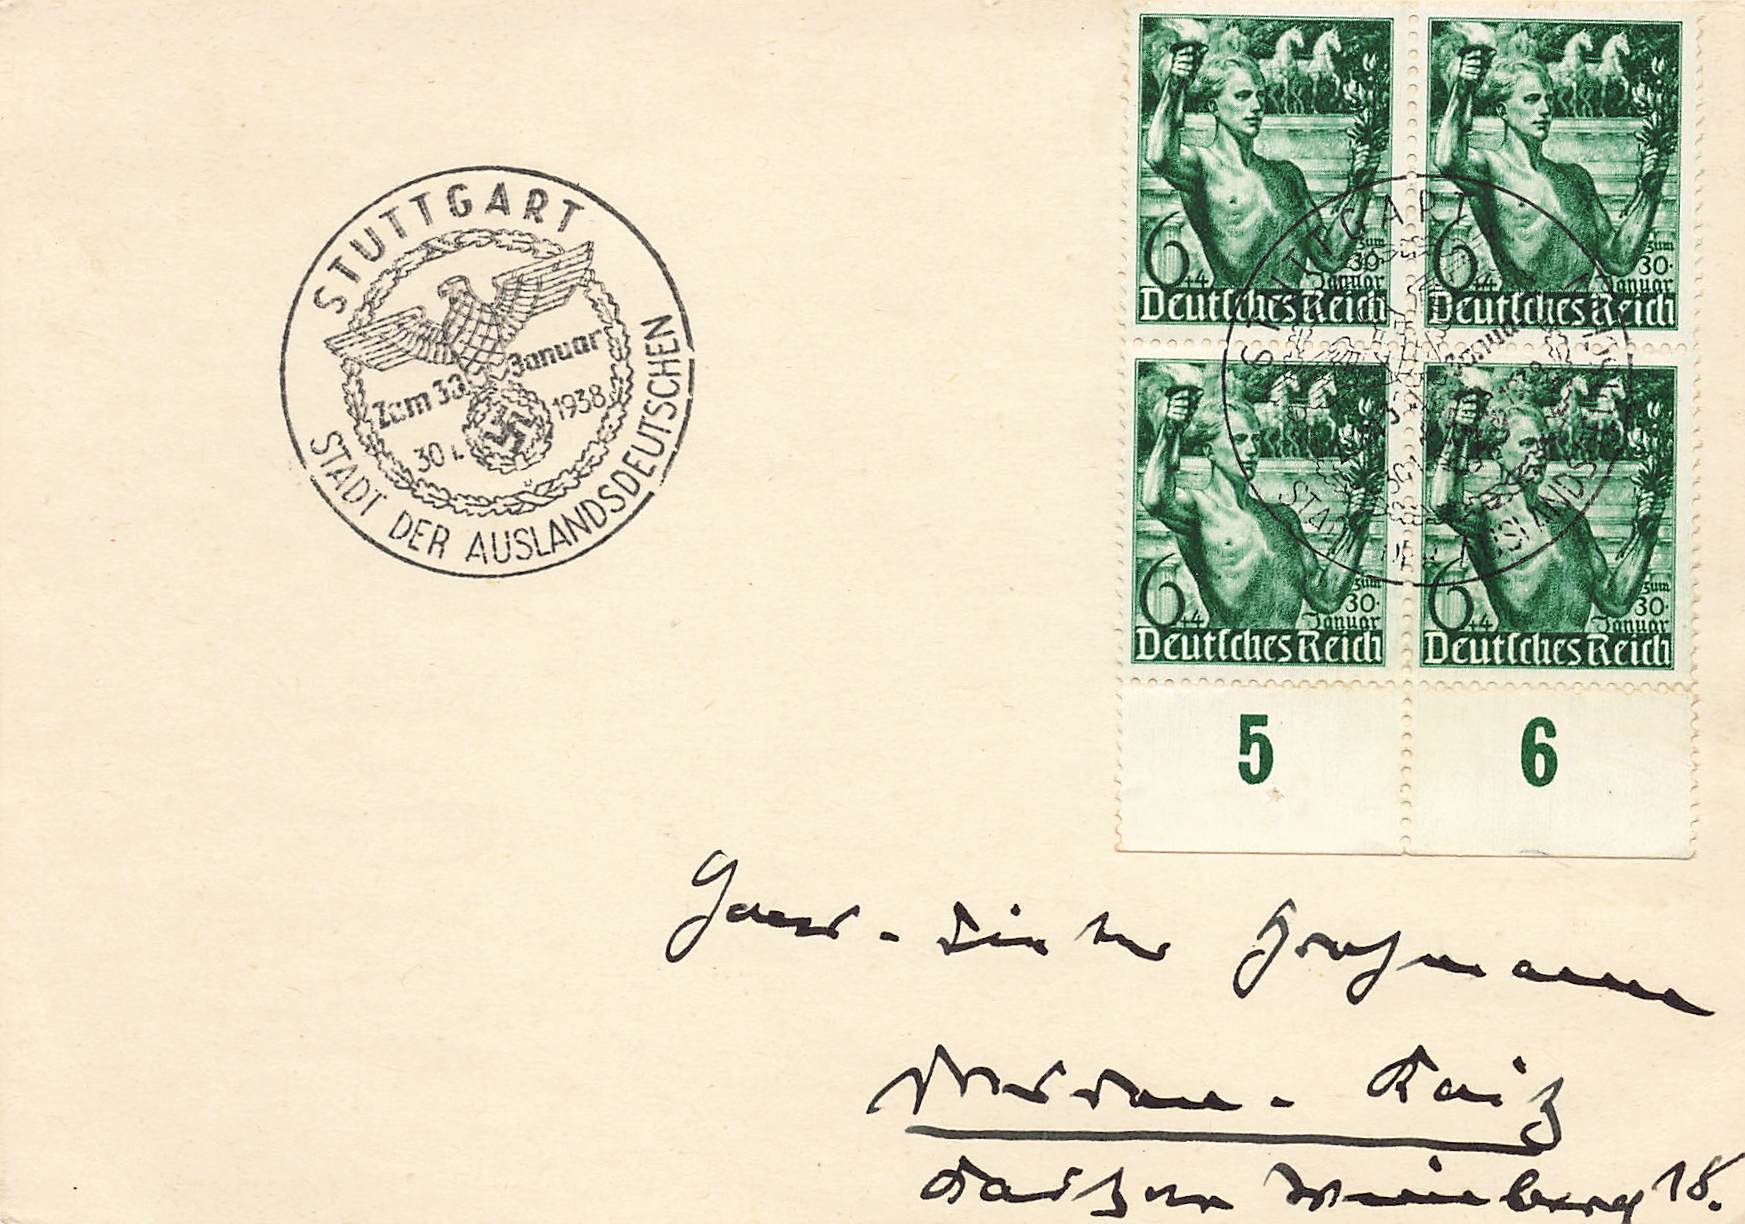 STUTTGART
Zum 30. Januar
30 1. 1938
STADT DER AUSLANDSDEUTSCHEN
6+4
Zum
30.
Januar
Deutsches Reich
6+4
Zum
30.
Januar
Deutsches Reich
6+4
Zum
30.
Januar
Deutsches Reich
6+4
Zum
30.
Januar
Deutsches Reich
STUTTGART
Januar
STADT DER AUSLANDS
5 6
Dresden - Kaitz
Kaitzer Weinberg 18.